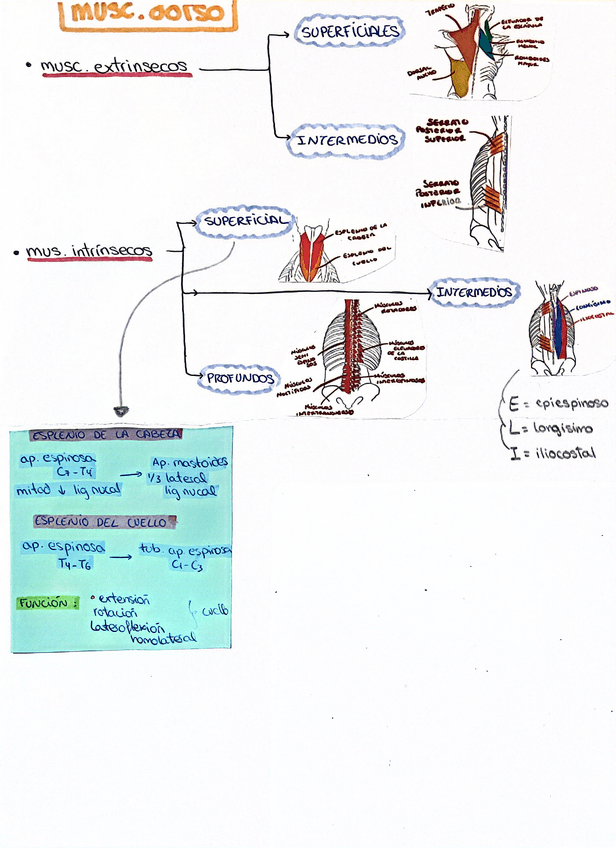 musc. dorso
• musc. extrinsecos
SUPERFICIALES
TRAPECIO
ELEVADOR DE
LA ESCÁPULA
ROMBOIDES
MENOR
ROMBOIDES
MAYOR
DORSAL
ANCHO
INTERMEDIOS
SERRATO
POSTERIOR
SUPERIOR
SERRATO
POSTERIOR
INFERIOR
• mus. intrínsecos
SUPERFICIAL
ESPLENIO DE LA
CABEZA
ESPLENIO DEL
CUELLO
INTERMEDIOS
ESPINOSO
LONGÍSIMO
ILIOCOSTAL
E = epiespinoso
L = longísimo
I = iliocostal
PROFUNDOS
MÚSCULOS
ROTADORES
MÚSCULOS
SEMI
MÚSCULOS
ELEVADORES
DE LA
COSTILLA
MÚSCULOS
MULTÍFIDOS
MÚSCULOS
MÚSCULOS
ESPLENIO DE LA CABEZA
ap. espinosa
C7 - T4
mitad ↓ lig nucal
→ Ap. mastoides
1/3 lateral
lig nucal
ESPLENIO DEL CUELLO
ap. espinosa
T4 - T6
→ tub. ap espinosa
C1 - C3
FUNCIÓN: • extensión
rotación
lateroflexión
homolateral
cuello